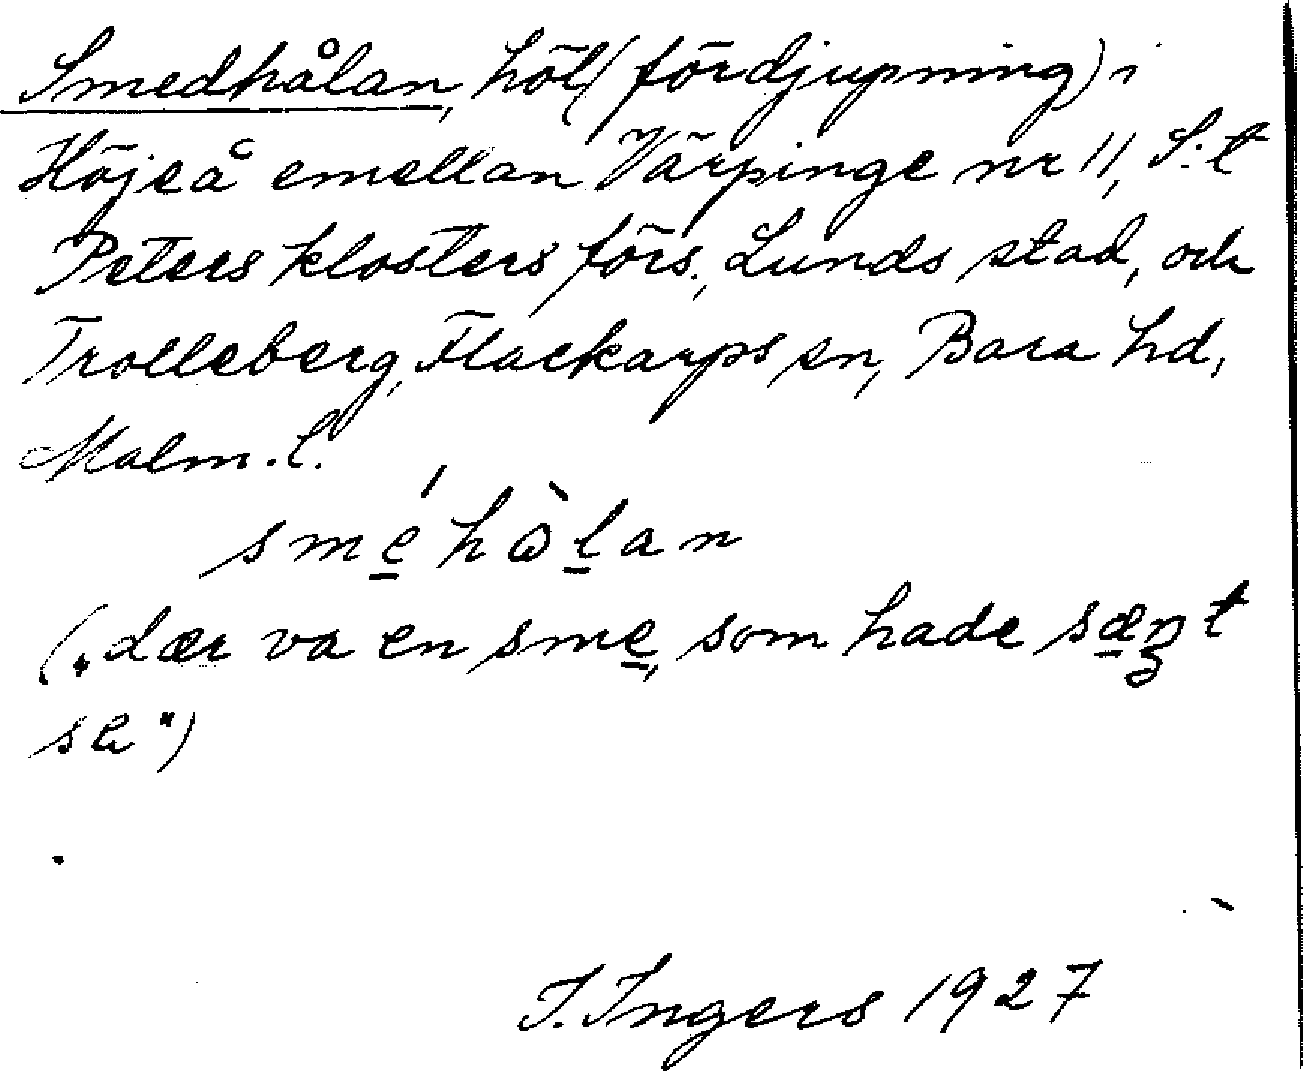 Smedhålan, höl (fördjupning) i
Höjeå emellan Värpinge nr 11, S:t
Peters klosters förs., Lunds stad, och
Trolleberg, Flackarps sn, Bara hd,
Malm. l.
smé̱hὼḻan
(„dær va en sme̱, som hade sæ̱ŋt
se")
I. Ingers 1927